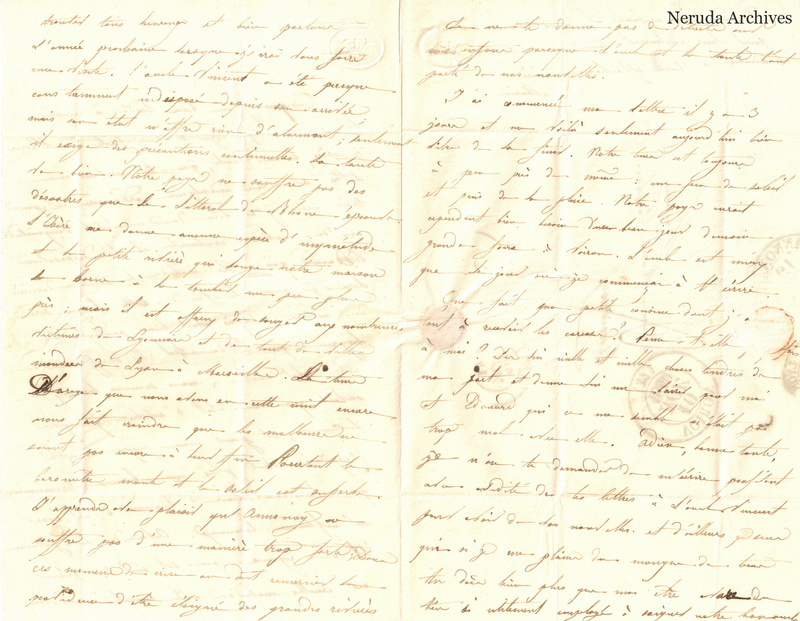 Neruda Archives
toutes tous heureux et bien portans
l'année prochaine lorsque j'irai vous faire
une visite. l'oncle Vincent a été presque
constamment indisposé depuis son arrivée
mais son état n'offre rien d'alarmant; seulement
il exige des précautions continuelles. La tante
va bien. Notre pays ne souffre pas des
désastres que le littoral du Rhône éprouve.
L'Isère ne donne aucune espèce d'inquiétude
et la petite rivière qui longe notre maison
se borne à la toucher un peu plus
près; mais il est affreux de songer aux nombreuses
victimes du Lyonnais et de tant de villes
inondées de Lyon à Marseille. Le
D'orage que nous avons eu cette nuit encore
nous fait craindre que les malheurs ne
soient pas encore à leur fin. Pourtant le
baromètre monte et le soleil est superbe.
J'apprends avec plaisir qu'Annonay ne
souffre pas d'une manière trop forte. Dans
ces momens de crise on doit remercier la
providence d'être éloigné des grandes rivières
Je ne te donne pas de détails sur
parceque l'oncle et la tante t'ont
parlé de nos nouvelles.
J'ai commencé ma lettre il y a 3
jours et me voilà seulement aujourd'hui bien
de la finir. Notre tems est toujours
à peu près de même: un peu de soleil
et puis de la pluie. Notre pays aurait
cependant bien besoin d'un bon jour demain
grande foire à Voiron. L'oncle est mieux
que le jour où je commençai à t'écrire.
Que fait ma petite cousine dont j'ai
eu à recevoir les caresses? Pense-t-elle
à moi? Dis lui mille et mille choses tendres de
ma part et donne lui un baiser pour moi
et Edouard qui à ce me semble n'était pas
trop mal avec elle. Adieu, bonne tante,
je n'ose te demander de m'écrire profitant
avec avidité de tes lettres à l'oncle Vincent
pour avoir de tes nouvelles. et d'ailleurs
si je me plains du manque de tems
tu dois bien plus que moi être
tien si utilement employé à soigner notre